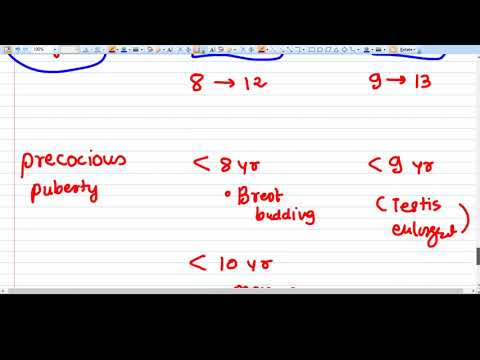 8 → 12 9 → 13
precocious < 8 yr < 9 yr
puberty • Breat (Testis
budding enlarged)
< 10 yr